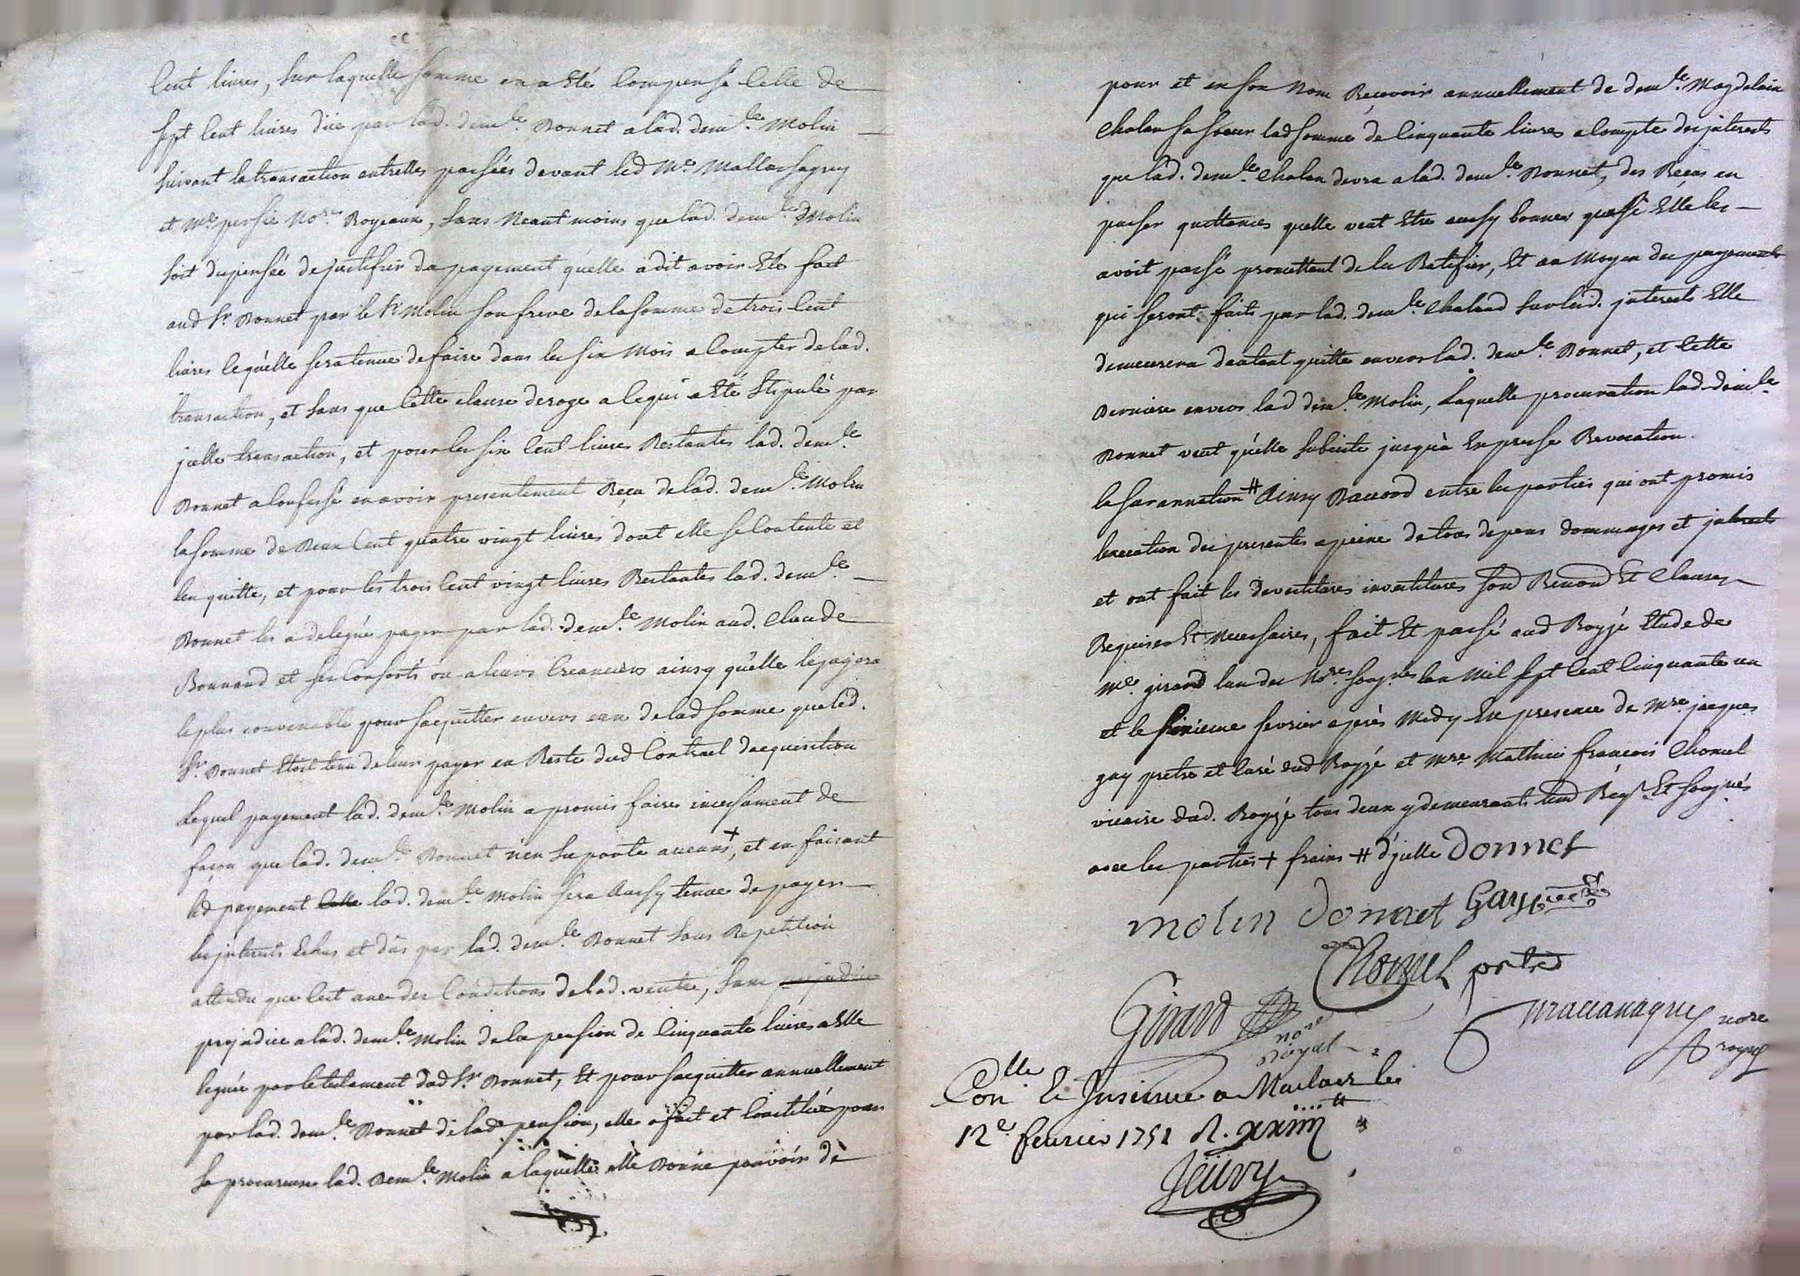 Cent livres, sur laquelle somme en a Eté Compensé Celle de
sept Cent livres düe par lad. dem.le Donnet a lad. dem.le Molin
suivant la transaction entrelles passées devant led Me
et Me Nore Royeaux, sans Neant moins que lad. dem.le Molin
soit dispensée de justifier du payement quelle a dit avoir Eté fait
aud Sr Donnet par le Sr Molin son frere de la somme de trois Cent
livres ce quelle sera tenue de faire dans les six Mois a Compter de lad.
transaction, et sans que Cette clause deroge a ce qui a Eté Stipulé par
jcelle transaction, et pour les six Cent livres Restantes lad. dem.le
Donnet a Confessé en avoir presentement Reçu de lad. dem.le Molin
la somme de Deux Cent quatre vingt livres dont elle se Contente et
len quitte, et pour les trois Cent vingt livres Restantes lad. dem.le
Donnet les a delegués payer par lad. dem.le Molin aud. Claude
Bonnand et ses Consorts ou a leurs Creanciers ainsy quelle le jugera
le plus convenable pour sacquitter envers eux de lad somme que led.
Sr Donnet Etoit tenu de leur payer en Reste dud Contract dacquisition
Lequel payement lad. dem.le Molin a promis faire incessament de
façon que lad. dem.le Donnet nen suporte aucuns +, et en faisant
led payement lad. dem.le Molin sera Aussy tenue de payer
les jnterests Echus et dûs par lad. dem.le Donnet sans Repetition
attendu que Cest une des Conditions de lad. vente, sans prejudice
prejudice a lad. dem.le Molin de la pension de Cinquante livres a Elle
leguée par le testament dud Sr Donnet, Et pour sacquitter annuellement
par lad. dem.le Donnet de lade pension, elle a fait et Constitué pour
sa procureuse lad. Dem.le Molin a laquelle elle Donne pouvoir de
pour et en son Nom Recevoir annuellement de dem.le Magdelaine
Chalan sa soeur lad somme de Cinquante livres a Compte des jnterests
que lad. dem.le Chalan devra a lad. dem.le Donnet, des Reçus en
passer quittances quelle veut Etre aussy bonnes que si Elle les
avoit passé promettant de les Ratifier, Et au Moyen des payements
qui seront faits par lad. dem.le Chaland sur lesd. jnterests Elle
demeurera dautant quitte envers lad. dem.le Donnet, et Cette
Derniere envers lad dem.le Molin, Laquelle procuration lad. dem.le
Donnet veut quelle subsiste jusqu'a Expresse Revocation.
la surannation # Ainsy Daccord entre les parties qui ont promis
lexecution des presentes a peine de tous depens dommages et jnterests
et ont fait les devestitures investitures sous Renond Et Clauses
Requises Et Necessaires, fait Et passé aud Etude de
Me girard lun des Nores sousgnes lan Mil sept Cent Cinquante un
et le sixieme fevrier apres Midy En presence de Mre jacques
gay pretre et Curé dud et Mre Mathieu françois Chomel
vicaire dud. tous deux y demeurants Et sousgnés
avec les parties + frains # djcelle Donnet
molin Donnet Gay
Chomel
Girard nore Royal
nore Royal
Con.lle Et Insinué a les
12e. fevrier 1751 R.